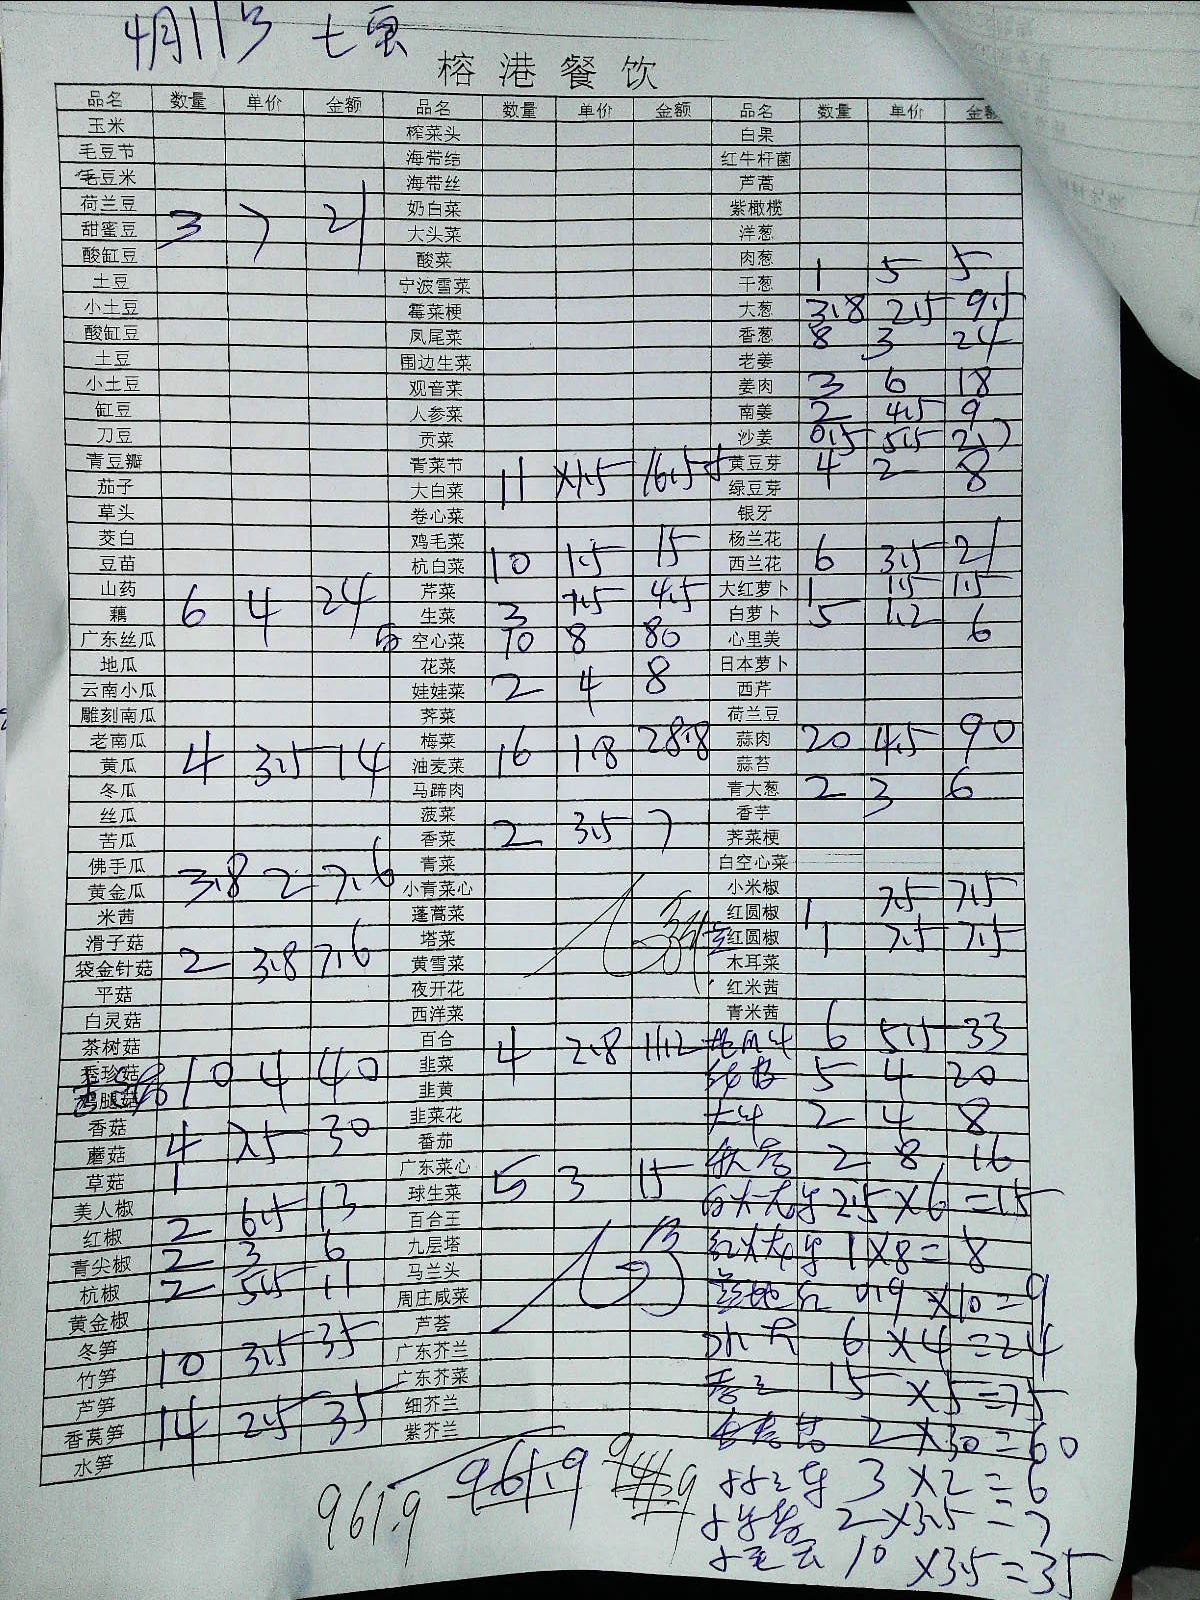 4月11号
榕港餐饮
品名 数量 单价 金额 品名 数量 单价 金额 品名 数量 单价 金额
玉米 榨菜头 白果
毛豆节 海带结 红牛杆菌
毛豆米 海带丝 芦蒿
荷兰豆 奶白菜 紫橄榄
甜蜜豆 3 7 21 大头菜 洋葱
酸缸豆 酸菜 肉葱
土豆 宁波雪菜 干葱 1 5 5
小土豆 霉菜梗 大葱 3.8 2.5 9.5
酸缸豆 凤尾菜 香葱 8 3 24
土豆 围边生菜 老姜
小土豆 观音菜 姜肉 3 6 18
缸豆 人参菜 南姜 2 4.5 9
刀豆 贡菜 沙姜 0.5 5.5 2.7
青豆瓣 青菜节 黄豆芽 4 2 8
茄子 大白菜 11 ×1.5 16.5 绿豆芽
草头 卷心菜 银牙
茭白 鸡毛菜 杨兰花
豆苗 杭白菜 10 1.5 15 西兰花 6 3.5 21
山药 芹菜 大红萝卜 1 1.5 1.5
藕 6 4 24 生菜 3 1.5 4.5 白萝卜 5 1.2 6
广东丝瓜 空心菜 10 8 80 心里美
地瓜 花菜 日本萝卜
云南小瓜 娃娃菜 2 4 8 西芹
雕刻南瓜 荠菜 荷兰豆
老南瓜 梅菜 蒜肉 20 4.5 90
黄瓜 4 3.5 14 油麦菜 16 1.8 28.8 蒜苔
冬瓜 马蹄肉 青大葱 2 3 6
丝瓜 菠菜 香芋
苦瓜 香菜 2 3.5 7 荠菜梗
佛手瓜 青菜 白空心菜
黄金瓜 3.8 2 7.6 小青菜心 小米椒 7.5 7.5
米茜 蓬蒿菜 红圆椒 1
滑子菇 塔菜 红圆椒 1 7.5 7.5
袋金针菇 2 3.8 7.6 黄雪菜 木耳菜
平菇 夜开花 红米茜
白灵菇 西洋菜 青米茜
茶树菇 百合 4 2.8 11.2 6 5.5 33
秀珍菇 10 4 40 韭菜 5 4 20
鸡腿菇 韭黄
香菇 韭菜花 2 4 8
蘑菇 4 7.5 30 番茄
草菇 1 广东菜心 2 8 16
美人椒 球生菜 5 3 15 2.5×6=15
红椒 2 6.5 13 百合王
青尖椒 2 3 6 九层塔 1×8=8
杭椒 2 5.5 11 马兰头
黄金椒 周庄咸菜 0.9×10=9
冬笋 芦荟 6×4=24
竹笋 10 3.5 35 广东芥兰
芦笋 广东芥菜 15×5=75
香莴笋 14 2.5 35 细芥兰
水笋 紫芥兰 2×30=60
961.9 961.9 3×2=6
2×3.5=7
10×3.5=35